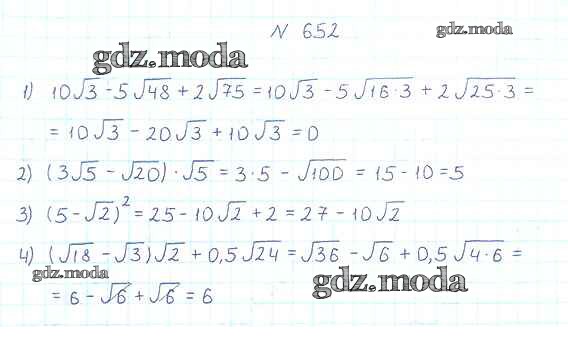 N 652
gdz.moda
gdz.moda
1) 10√3 - 5√48 + 2√75 = 10√3 - 5√16·3 + 2√25·3 =
= 10√3 - 20√3 + 10√3 = 0
2) (3√5 - √20)·√5 = 3·5 - √100 = 15 - 10 = 5
3) (5 - √2)² = 25 - 10√2 + 2 = 27 - 10√2
4) (√18 - √3)√2 + 0,5√24 = √36 - √6 + 0,5√4·6 =
gdz.moda
gdz.moda
= 6 - √6 + √6 = 6